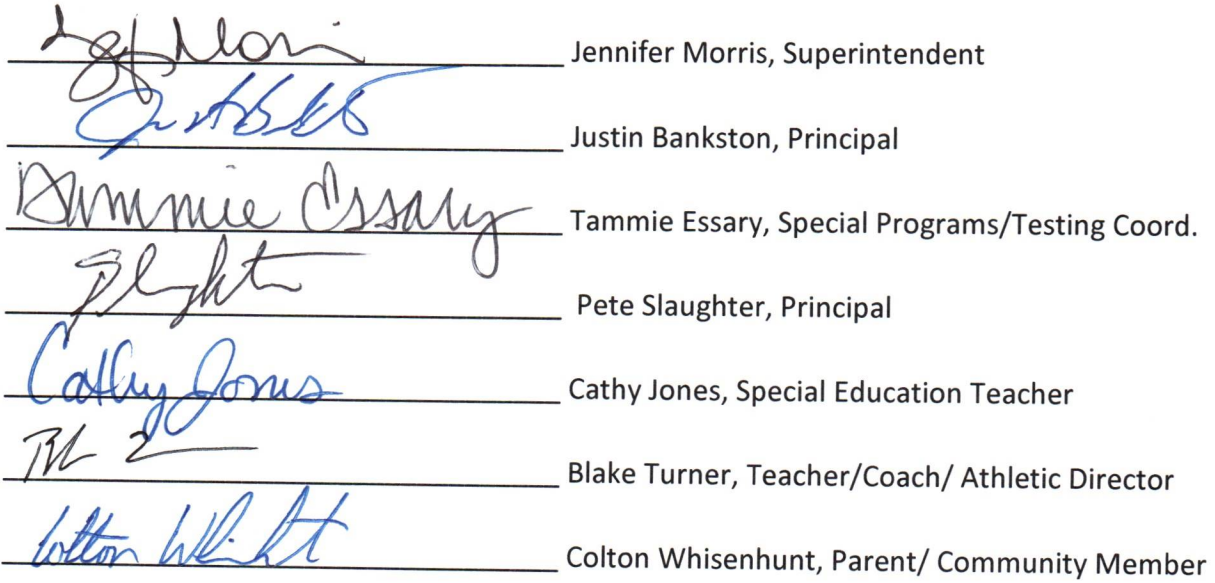 Jennifer Morris, Superintendent
Justin Bankston, Principal
Tammie Essary Tammie Essary, Special Programs/Testing Coord.
Pete Slaughter, Principal
Cathy Jones Cathy Jones, Special Education Teacher
Blake Turner, Teacher/Coach/ Athletic Director
Colton Colton Whisenhunt, Parent/ Community Member